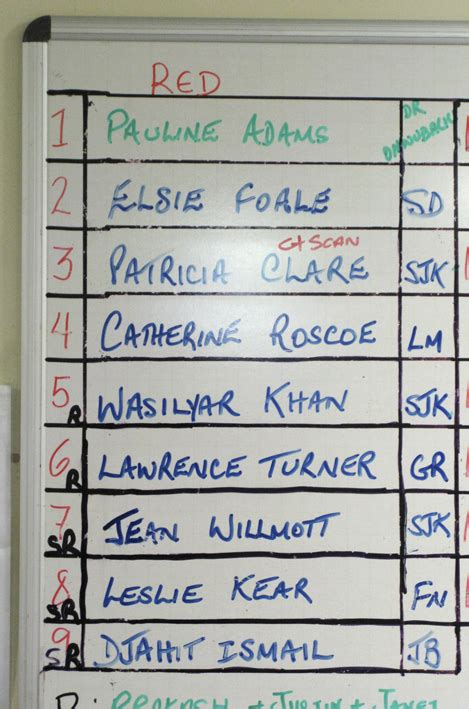 RED
1 PAULINE ADAMS DR
2 ELSIE FOALE SD
CT SCAN
3 PATRICIA CLARE SJK
4 CATHERINE ROSCOE LM
5 R WASILYAR KHAN SJK
6 R LAWRENCE TURNER GR
7 SR JEAN WILLMOTT SJK
8 SR LESLIE KEAR FN
9 SR DJAHIT ISMAIL JB
+ JUSTIN + JANET